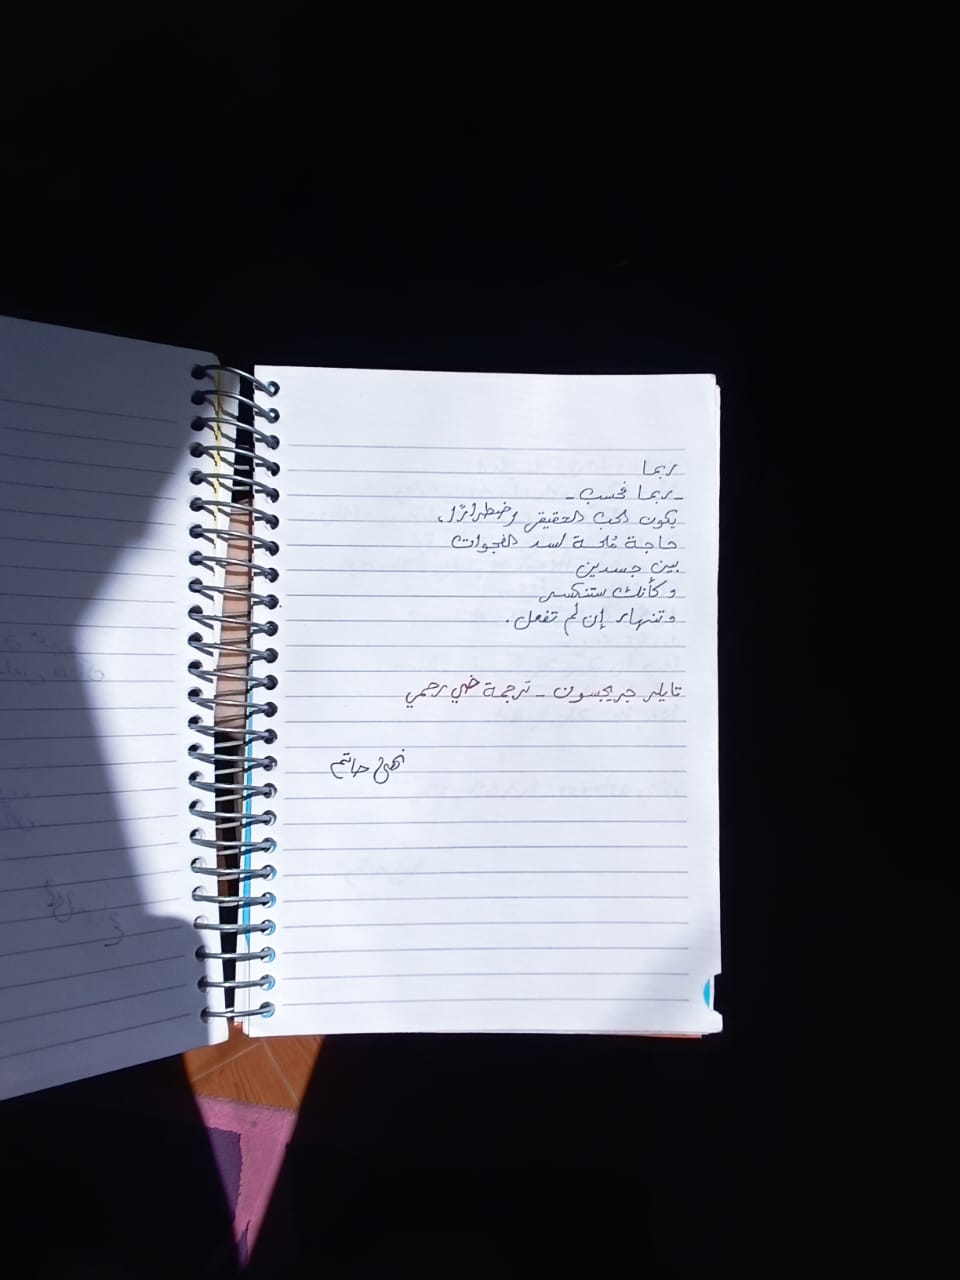 ربما
_ ربما فحسب _
يكون الحب الحقيقي اضطرارًا،
حاجة مُلحة لسد الفجوات
بين جسدين
وكأنك ستنكسر
وتنهار إن لم تفعل.
تايلر جريجسون _ ترجمة ضي رحمي
نهى حاتم